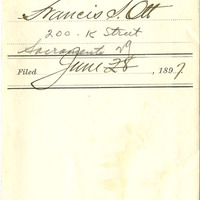 Francis S. Ott
200 - K Street
Sacramento
Filed June 28, 1897.